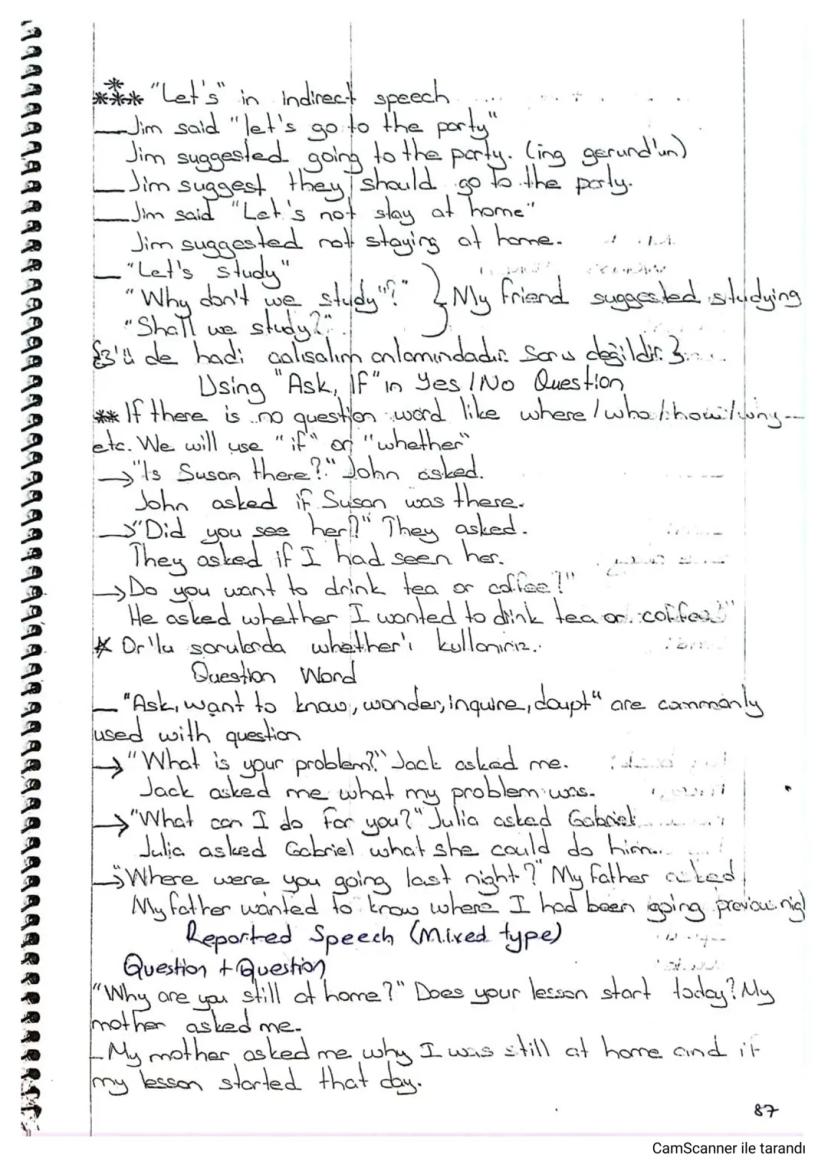 *** "Let's" in indirect speech
Jim said "let's go to the party"
Jim suggested going to the party. (ing gerund'un)
Jim suggest they should go to the party.
Jim said "Let's not stay at home"
Jim suggested not staying at home.
"Let's study"
"Why don't we study"?" } My friend suggested studying
"Shall we study?"
{3'ü de hadi çalışalım anlamındadır. Soru değildir.}
Using "Ask, If" in Yes/No Question
** If there is no question word like where/who/how/why--
etc. We will use "if" or "whether"
→"Is Susan there?" John asked.
John asked if Susan was there.
→"Did you see her?" They asked.
They asked if I had seen her.
→Do you want to drink tea or coffee?"
He asked whether I wanted to drink tea or coffee?"
* Or'lu sorularda whether'ı kullanırız.
Question Word
- "Ask, want to know, wonder, inquire, doupt" are commonly
used with question
→"What is your problem?" Jack asked me.
Jack asked me what my problem was.
→"What can I do for you?" Julia asked Gabriel
Julia asked Gabriel what she could do him..
→"Where were you going last night?" My father asked
My father wanted to know where I had been going previous nig
Reported Speech (Mixed type)
Question + Question
"Why are you still at home?" Does your lesson start today? My
mother asked me.
- My mother asked me why I was still at home and if
my lesson started that day.
87
CamScanner ile tarandı